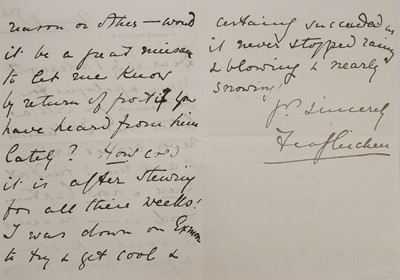 reason or other – would
it be a great nuisance
to let me know
by return of post if you
have heard from him
lately? How cold
it is after stewing
for all these weeks!
I was down on Exmoor
to try & get cool &
certainly succeeded as
it never stopped raining
& blowing & nearly
snowing!
Yrs sincerely
Gleichen